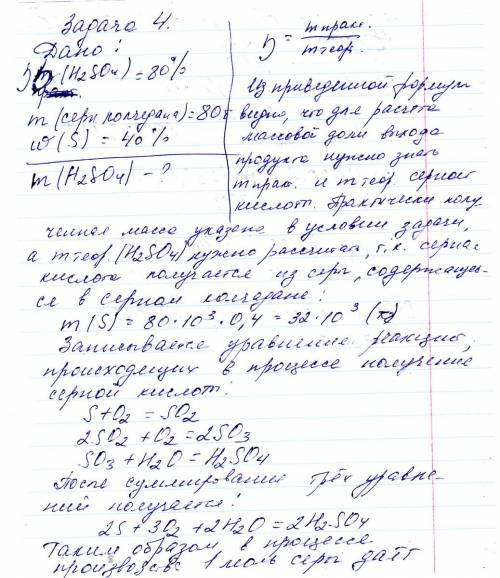 Задача 4.
Дано:
η (H₂SO₄) = 80%
m (серн колчедана) = 80т
ω (S) = 40%
m (H₂SO₄) – ?
η = m практ. / m теор.
Из приведенной формулы
видно, что для расчета
массовой доли выхода
продукта нужно знать
m прак. и m теор. серной
кислоты. Практически полу-
ченная масса указана в условии задачи,
а m теор. (H₂SO₄) нужно рассчитать, т.к. серная
кислота получается из серы, содержащей-
ся в серном колчедане:
m (S) = 80·10³·0,4 = 32·10³
Записываем уравнение реакций,
происходящих в процессе получения
серной кислоты:
S + O₂ = SO₂
2SO₂ + O₂ = 2SO₃
SO₃ + H₂O = H₂SO₄
После суммирования трёх уравне-
ний получается:
2S + 3O₂ + 2H₂O = 2H₂SO₄
Таким образом в процессе
производства 1 моль серы даёт